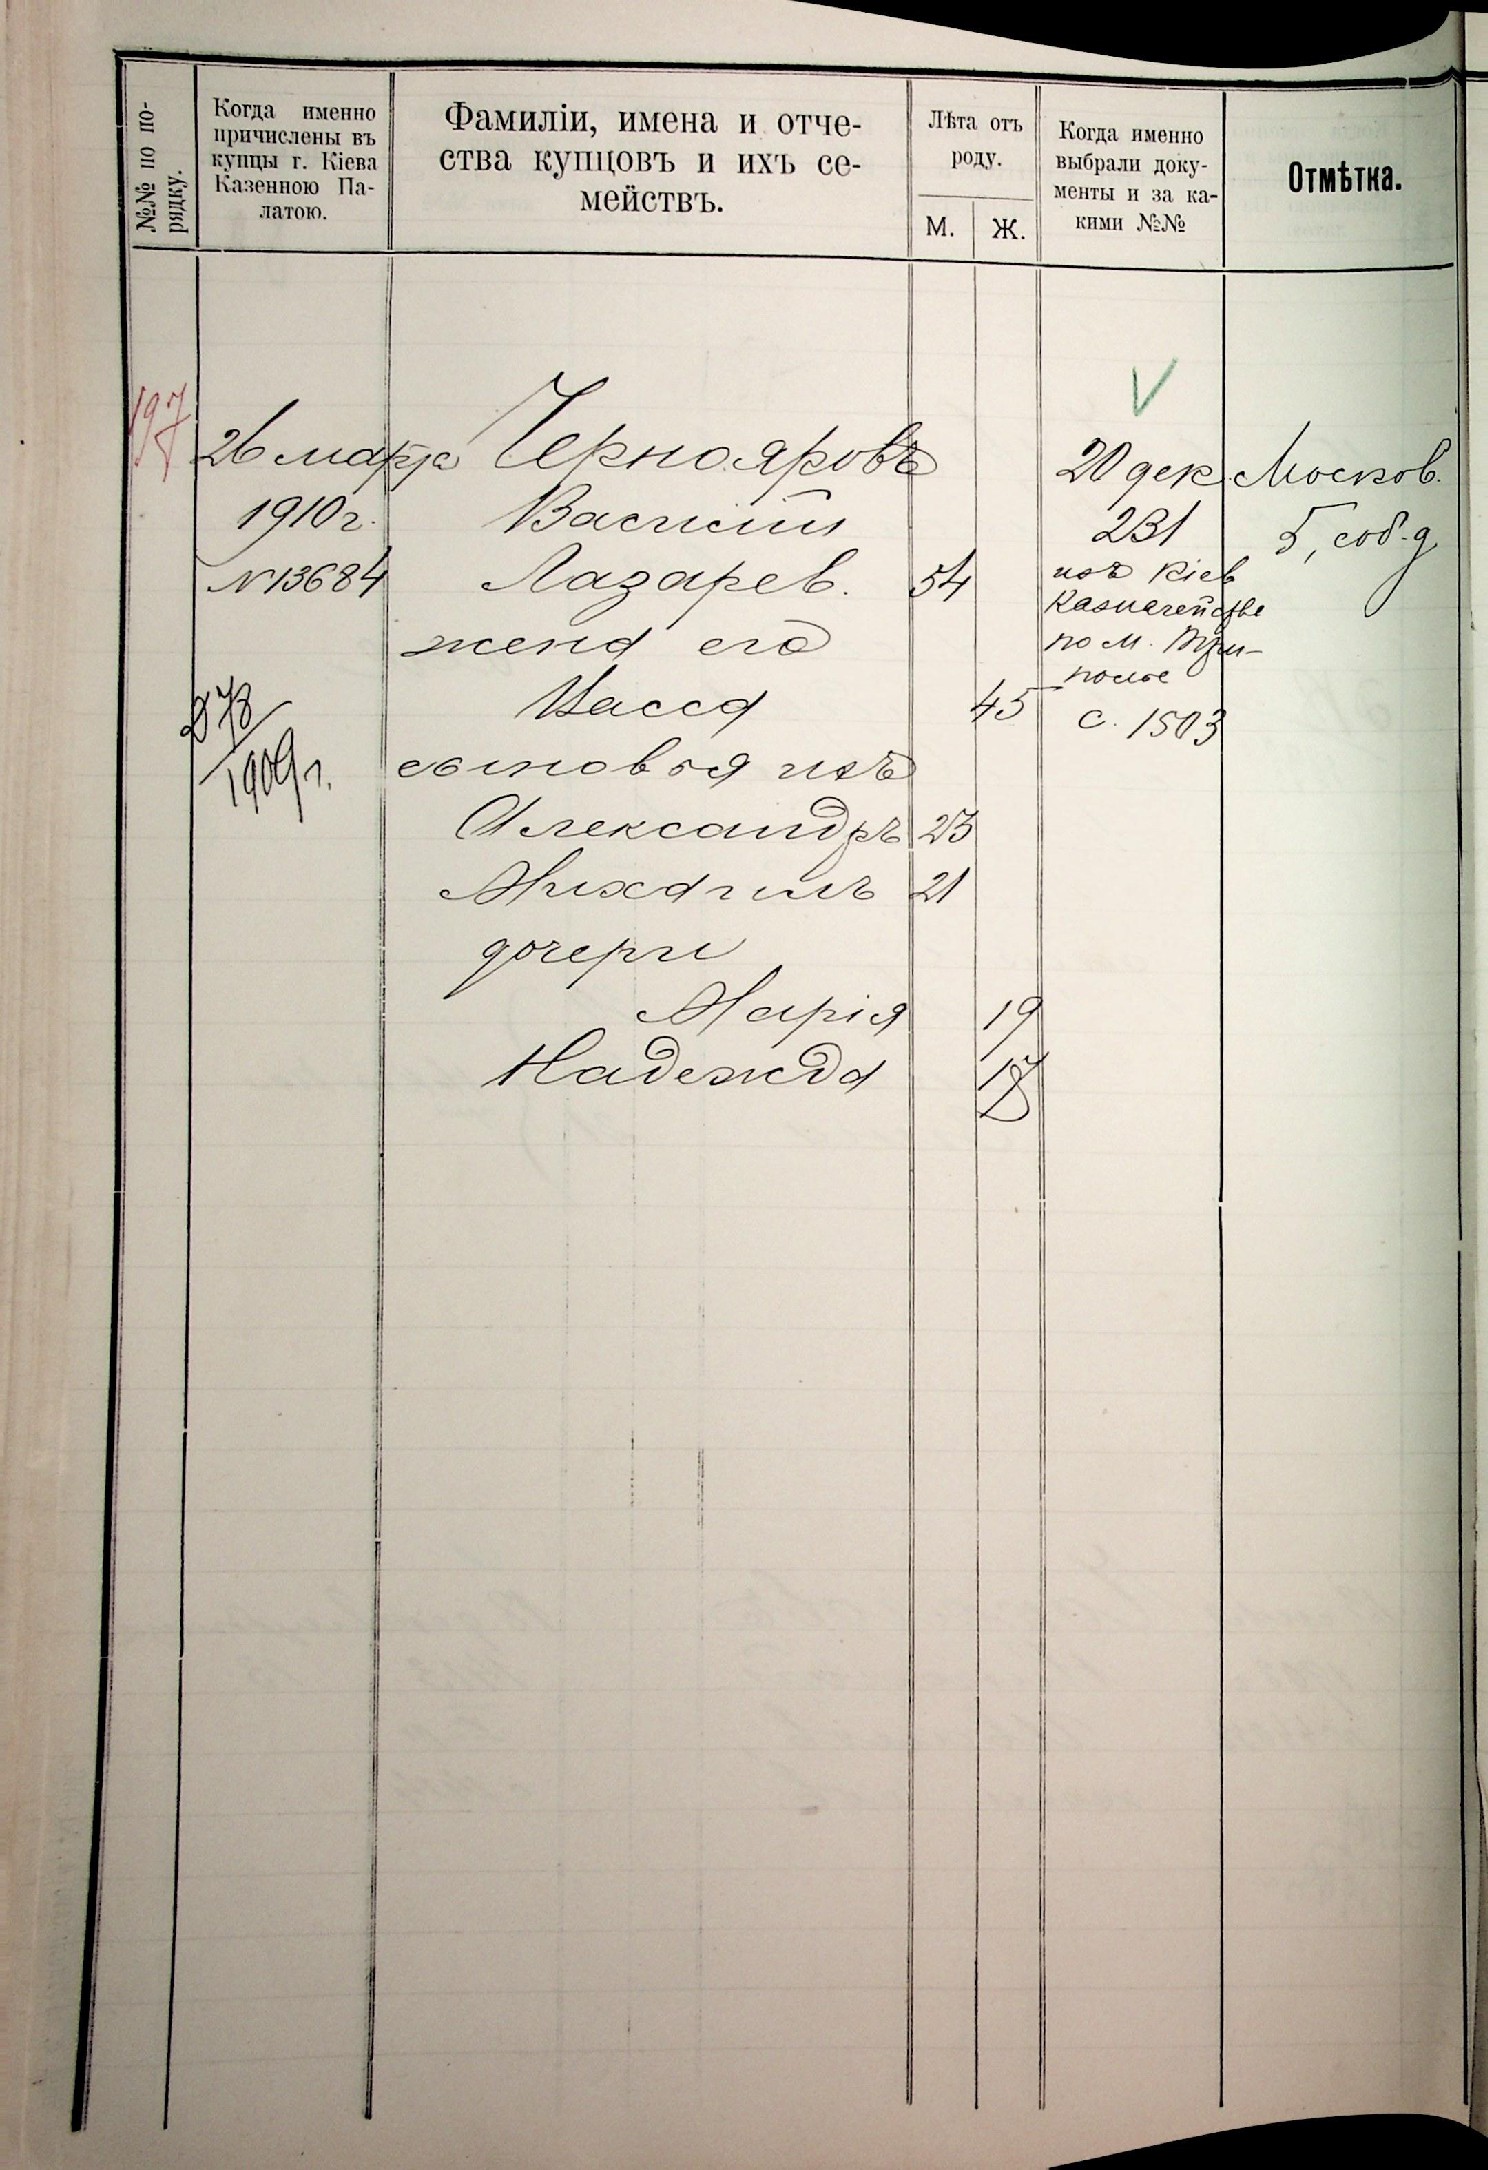 №№ по по-
рядку.
Когда именно
причислены въ
купцы г. Кіева
Казенною Па-
латою.
Фамиліи, имена и отче-
ства купцовъ и ихъ се-
мействъ.
Лѣта отъ
роду.
М.
Ж.
Когда именно
выбрали доку-
менты и за ка-
кими №№
Отмѣтка.
197
26 марта
1910 г.
N 13684
1909 г.
Чернояровъ
Василій
Лазарев. 54
жена его
Васса 45
сыновья ихъ
Александръ 23
Михаилъ 21
дочери
Марія 19
Надежда 17
20 дек.
231
изъ Кіев
Казначейства
по м.
с. 1503
Москов.
5, соб. д